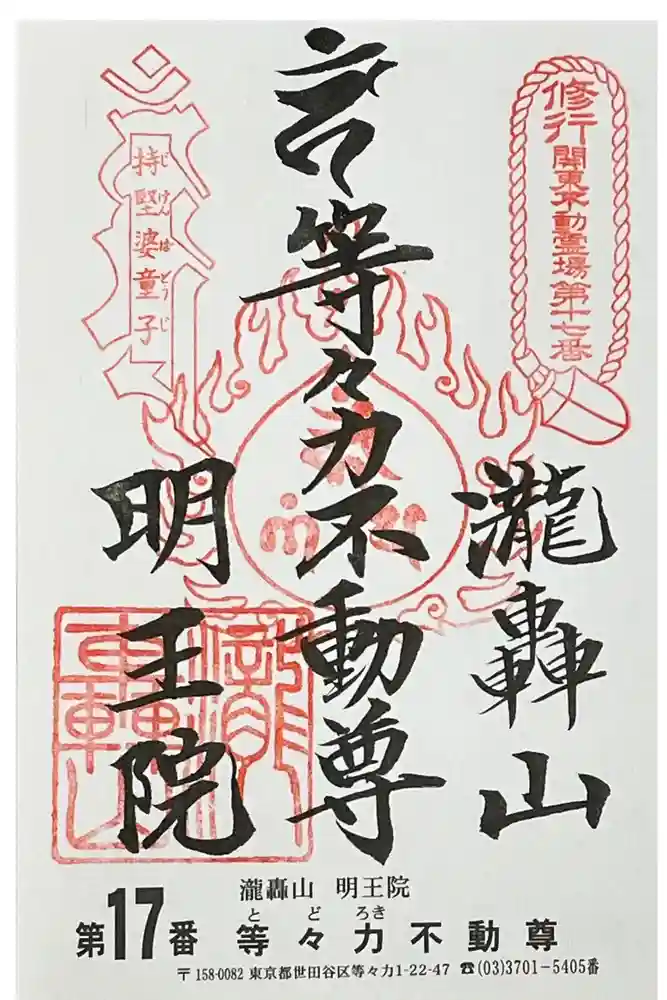 修行
関東不動霊場第十七番
等々力不動尊
瀧轟山
明王院
持堅婆童子
じけんばどうじ
瀧轟山
瀧轟山 明王院
とどろき
第17番 等々力不動尊
〒158-0082 東京都世田谷区等々力1-22-47 ☎(03)3701-5405番